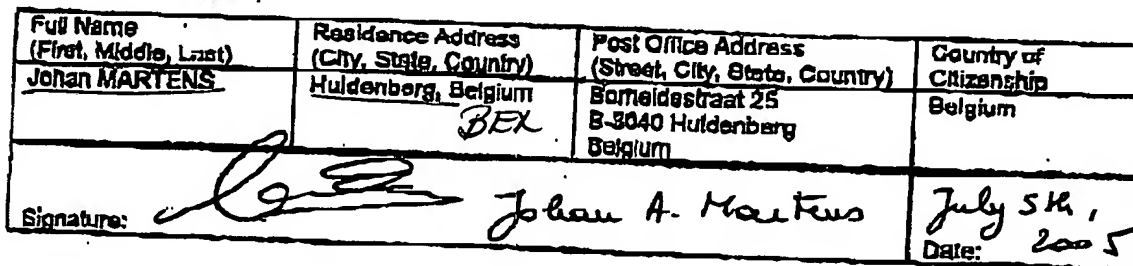 Full Name
(First, Middle, Last)
Residence Address
(City, State, Country)
Post Office Address
(Street, City, State, Country)
Country of
Citizenship
Johan MARTENS
Huldenberg, Belgium
BEX
Borneidestraat 25
B-3040 Huldenberg
Belgium
Belgium
Signature:
Johan A. Martens
July 5th,
2005
Date: